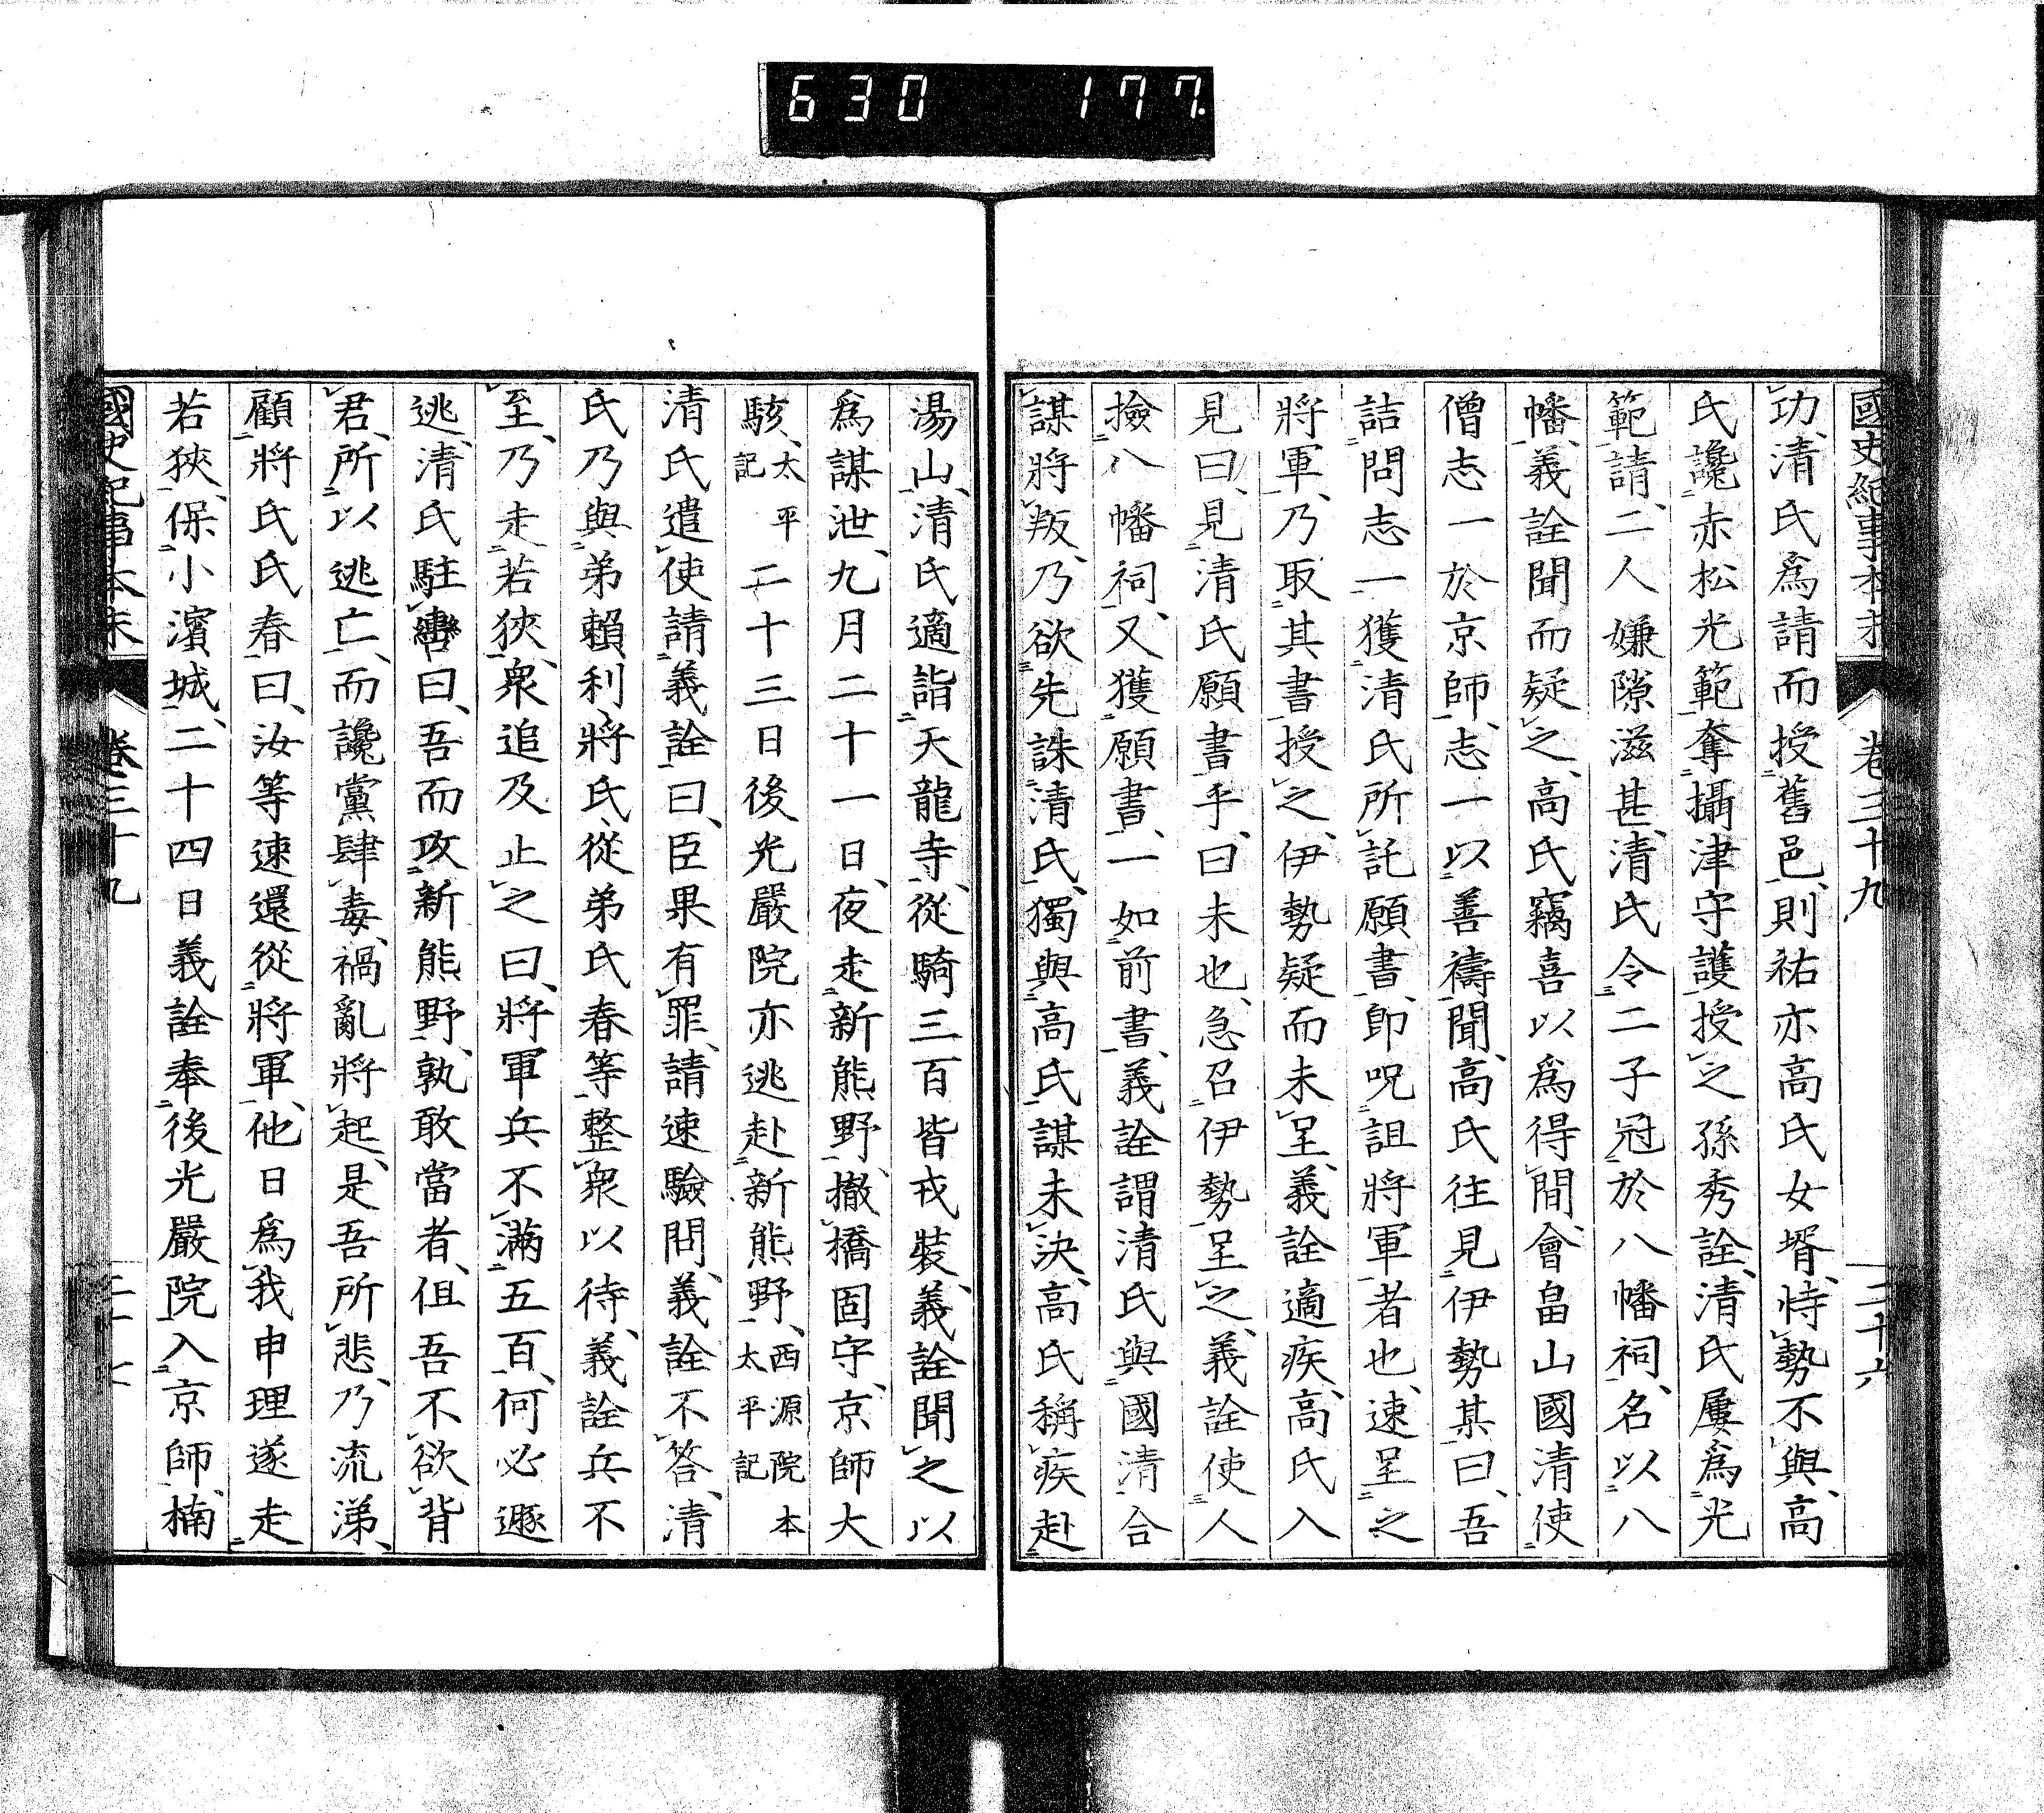 630 177
國史紀事本末 卷三十九 二十六
功、清氏爲請而授舊邑、則祐亦高氏女壻、恃勢不與、高
氏讒赤松光範、奪攝津守護、授之孫秀詮、清氏屢爲光
範請、二人嫌隙滋甚、清氏令二子冠於八幡祠、名以八
幡、義詮聞而疑之、高氏竊喜以爲得間、會畠山國清使
僧志一於京師、志一以善禱聞、高氏往見伊勢某曰、吾
詰問志一獲清氏所託願書、卽呪詛將軍者也、速呈之
將軍、乃取其書授之、伊勢疑而未呈、義詮適疾、高氏入
見曰、見清氏願書乎、曰未也、急召伊勢呈之、義詮使人
撿八幡祠、又獲願書、一如前書、義詮謂清氏與國清合
謀將叛、乃欲先誅清氏、獨與高氏謀未決、高氏稱疾赴
湯山、清氏適詣天龍寺、從騎三百皆戎裝、義詮聞之以
爲謀泄、九月二十一日、夜走新熊野、撤橋固守、京師大
駭、太平記 二十三日後光嚴院亦逃赴新熊野、西源院本太平記
清氏遣使請義詮曰、臣果有罪、請速驗問、義詮不答、清
氏乃與弟賴利、將氏、從弟氏春等整衆以待、義詮兵不
至、乃走若狹、衆追及止之曰、將軍兵不滿五百、何必遯
逃、清氏駐轡曰、吾而攻新熊野、孰敢當者、但吾不欲背
君、所以逃亡、而讒黨肆毒、禍亂將起、是吾所悲、乃流涕、
顧將氏氏春曰、汝等速還從將軍、他日爲我申理遂走
若狹、保小濱城、二十四日義詮奉後光嚴院入京師、楠
國史紀事本末 卷三十九 二十七